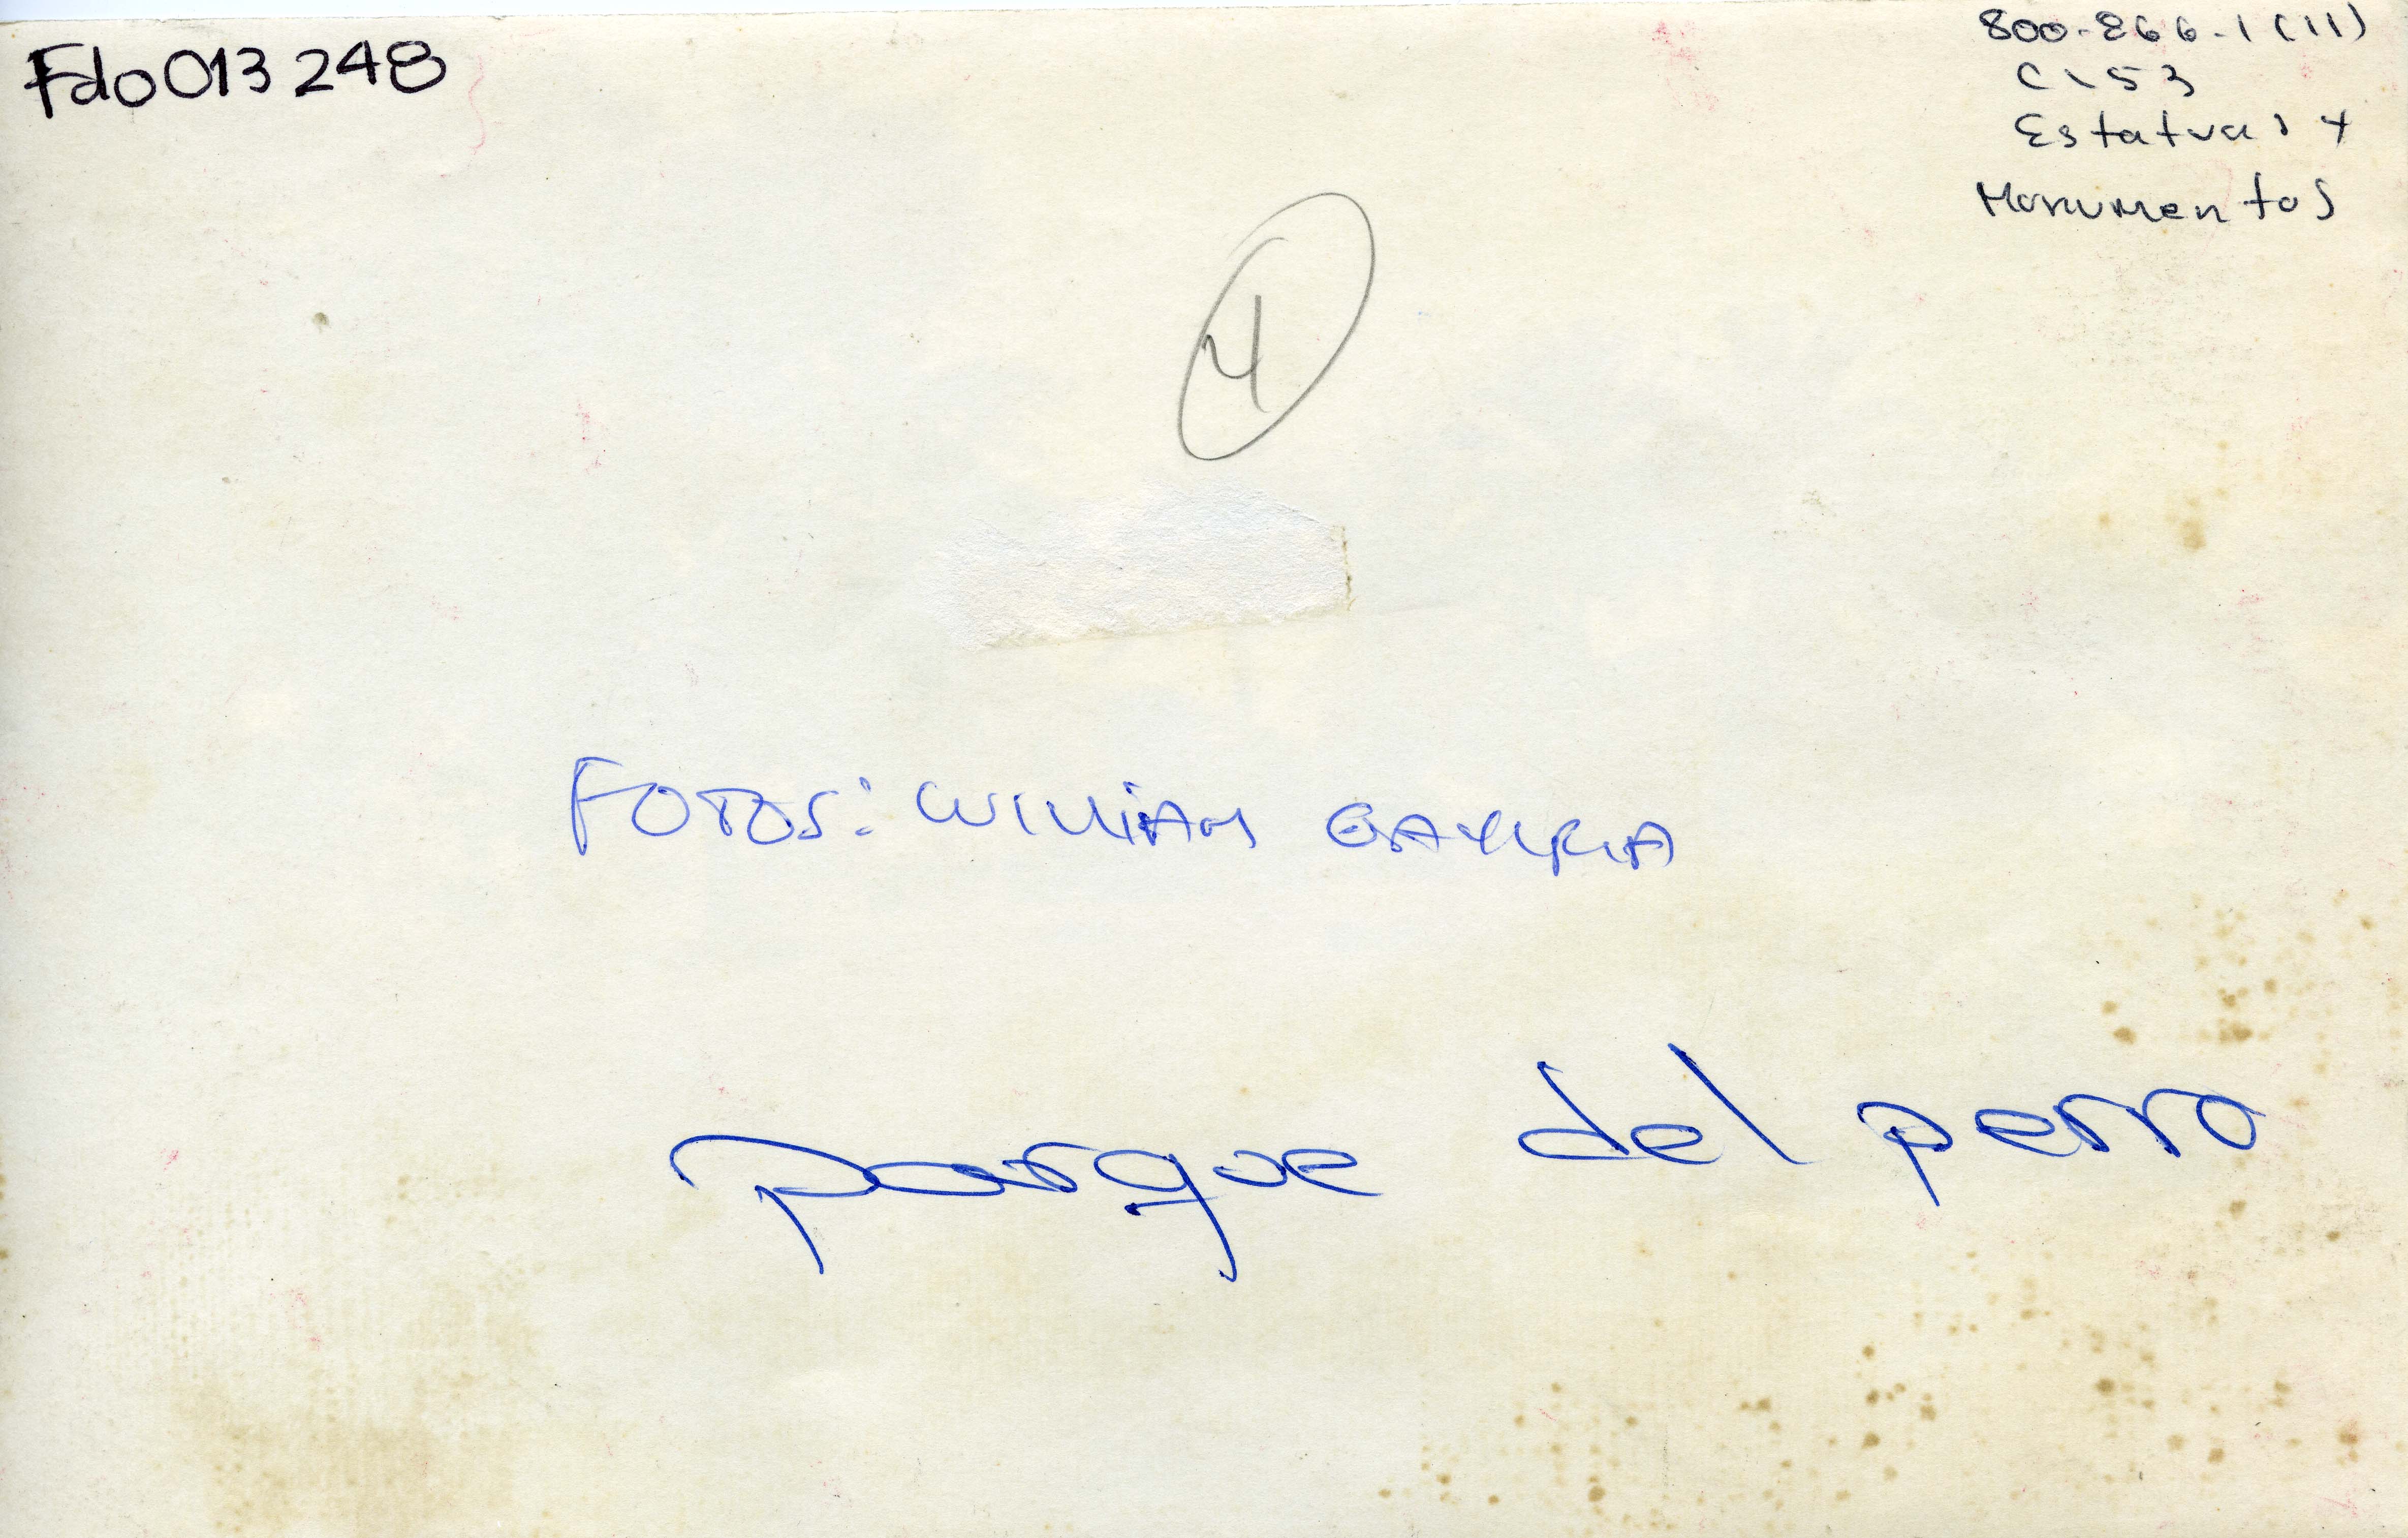 Fdo 013 248
800-866-1(11)
C153
Estatuas y
Monumentos
4
FOTOS: WILLIAM
parque del perro